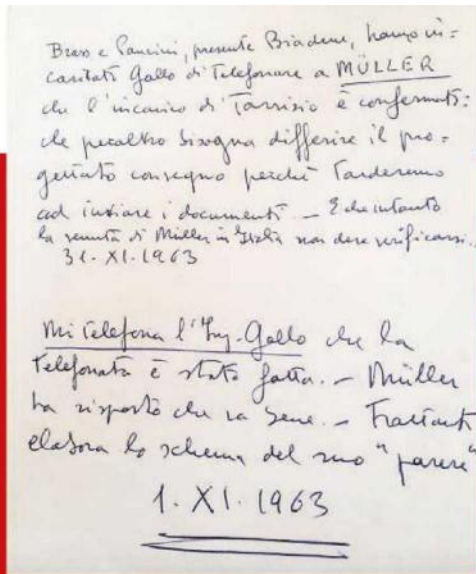 Broso e Pancini, presente Biadene, hanno in=
caricato Gallo di telefonare a MÜLLER
che l'incarico di Tarvisio è confermato:
che peraltro bisogna differire il pro=
gettato convegno perché tarderemo
ad inviare i documenti. — E che intanto
la venuta di Müller in Italia non deve verificarsi.
31-XI-1963
Mi telefona l'Ing. Gallo che la
telefonata è stata fatta. — Müller
ha risposto che va bene. — Frattanto
elabora lo schema del suo "parere"
1. XI. 1963